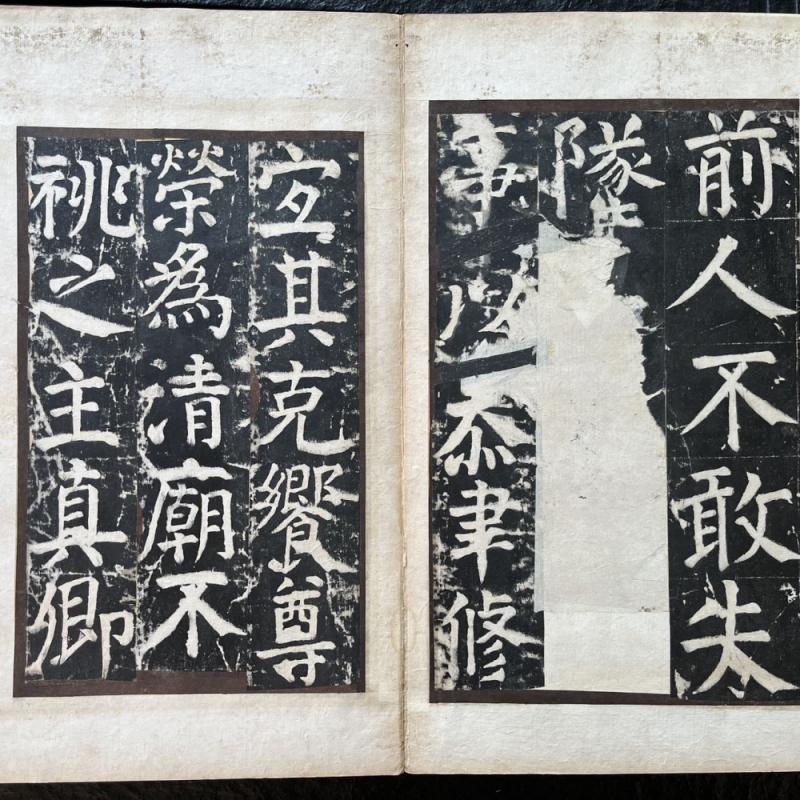 前人不敢失
墜
事以忝聿修
宜其克饗尊
榮為清廟不
祧之主真卿